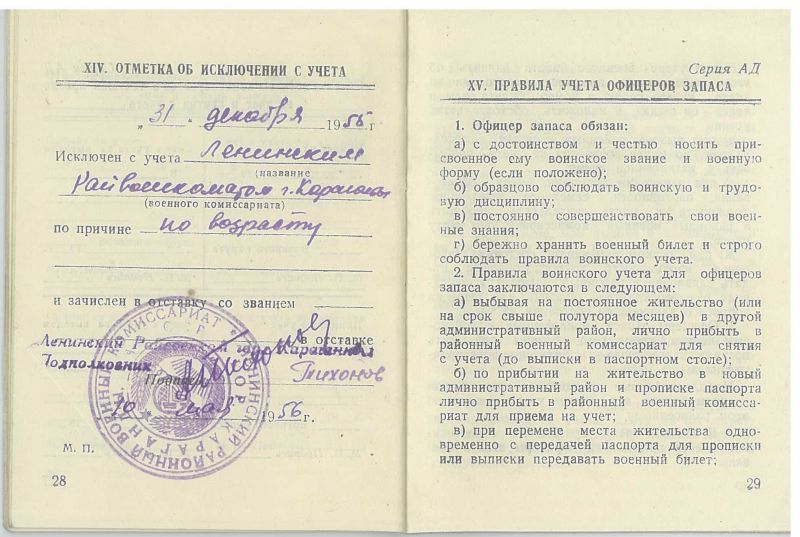 XIV. ОТМЕТКА ОБ ИСКЛЮЧЕНИИ С УЧЕТА
„31" декабря 1955 г
Исключен с учета Ленинским
(название
Райвоенкоматом г. Караганды
(военного комиссариата)
по причине по возрасту
и зачислен в отставку со званием
в отставке
Ленинский Рай
Караганды
Подполковник
Подпись
Тихонов
10 мая 1956 г.
М. П.
ЛЕНИНСКИЙ РАЙОННЫЙ ВОЕННЫЙ КОМИССАРИАТ
28
Серия АД
XV. ПРАВИЛА УЧЕТА ОФИЦЕРОВ ЗАПАСА
1. Офицер запаса обязан:
а) с достоинством и честью носить при-
своенное ему воинское звание и военную
форму (если положено);
б) образцово соблюдать воинскую и трудо-
вую дисциплину;
в) постоянно совершенствовать свои воен-
ные знания;
г) бережно хранить военный билет и строго
соблюдать правила воинского учета.
2. Правила воинского учета для офицеров
запаса заключаются в следующем:
а) выбывая на постоянное жительство (или
на срок свыше полутора месяцев) в другой
административный район, лично прибыть в
районный военный комиссариат для снятия
с учета (до выписки в паспортном столе);
б) по прибытии на жительство в новый
административный район и прописке паспорта
лично прибыть в районный военный комисса-
риат для приема на учет;
в) при перемене места жительства одно-
временно с передачей паспорта для прописки
или выписки передавать военный билет;
29